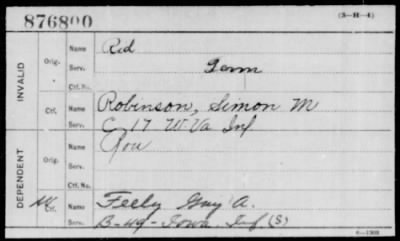 876800
(3-H-4)
INVALID
Orig. Name Rid
Serv. Germ
Ctf. No.
Ctf. Name Robinson, Simon M
Serv. C 17 W Va Inf
DEPENDENT
Orig. Name
Serv.
Ctf. No.
Ctf. Name Feely Guy A.
Serv. B-49-Iowa. Inf (S)